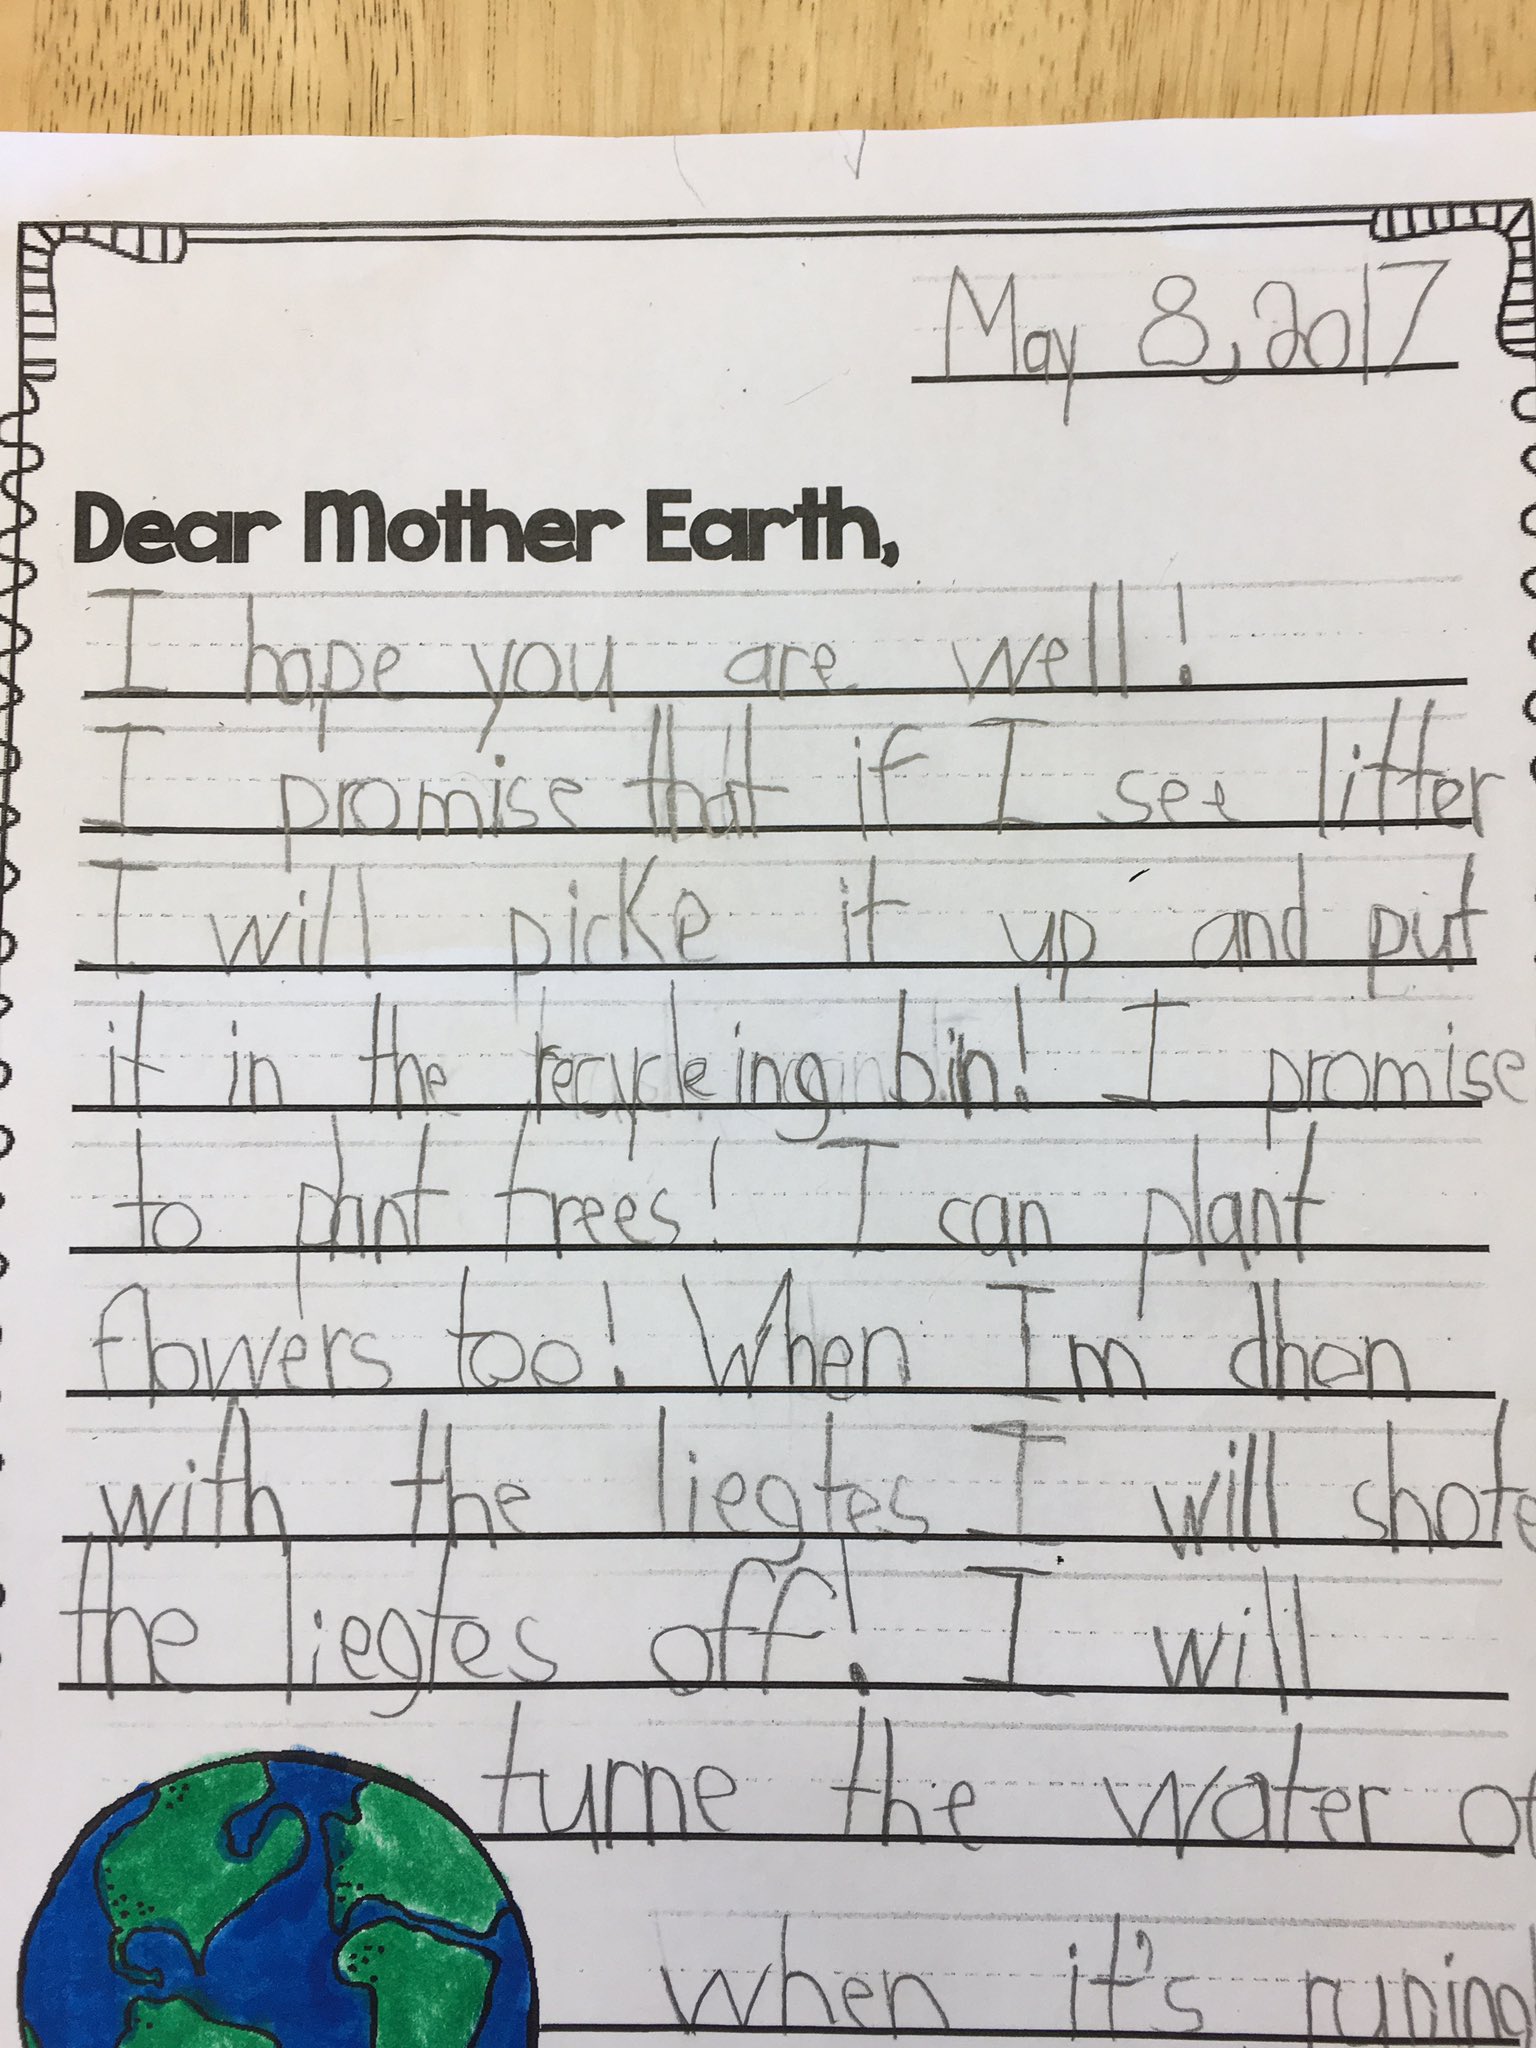 May 8, 2017
Dear Mother Earth,
I hope you are well!
I promise that if I see litter
I will picke it up and put
it in the recycleing bin! I promise
to plant trees! I can plant
flowers too! When Im dhon
with the liegtes I will shote
the liegtes off! I will
turne the water
when it's runing